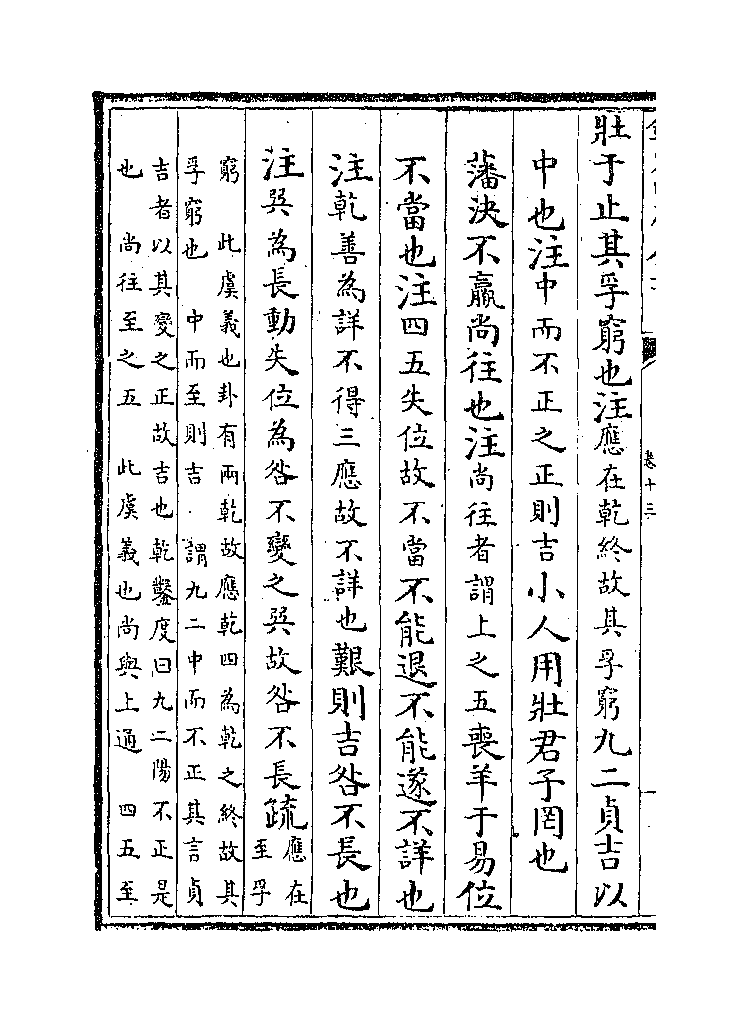 卷十三
壯于止其孚窮也注應在乾終故其孚窮九二貞吉以
中也注中而不正之正則吉小人用壯君子罔也
藩決不羸尚往也注尚往者謂上之五喪羊于易位
不當也注四五失位故不當不能退不能遂不詳也
注乾善為詳不得三應故不詳也艱則吉咎不長也
注巽為長動失位為咎不變之巽故咎不長疏應在
至孚
窮　此虞義也卦有兩乾故應乾四為乾之終故其
孚窮也　中而至則吉　謂九二中而不正其言貞
吉者以其變之正故吉也乾鑿度曰九二陽不正是
也　尚往至之五　此虞義也尚與上通　四五至